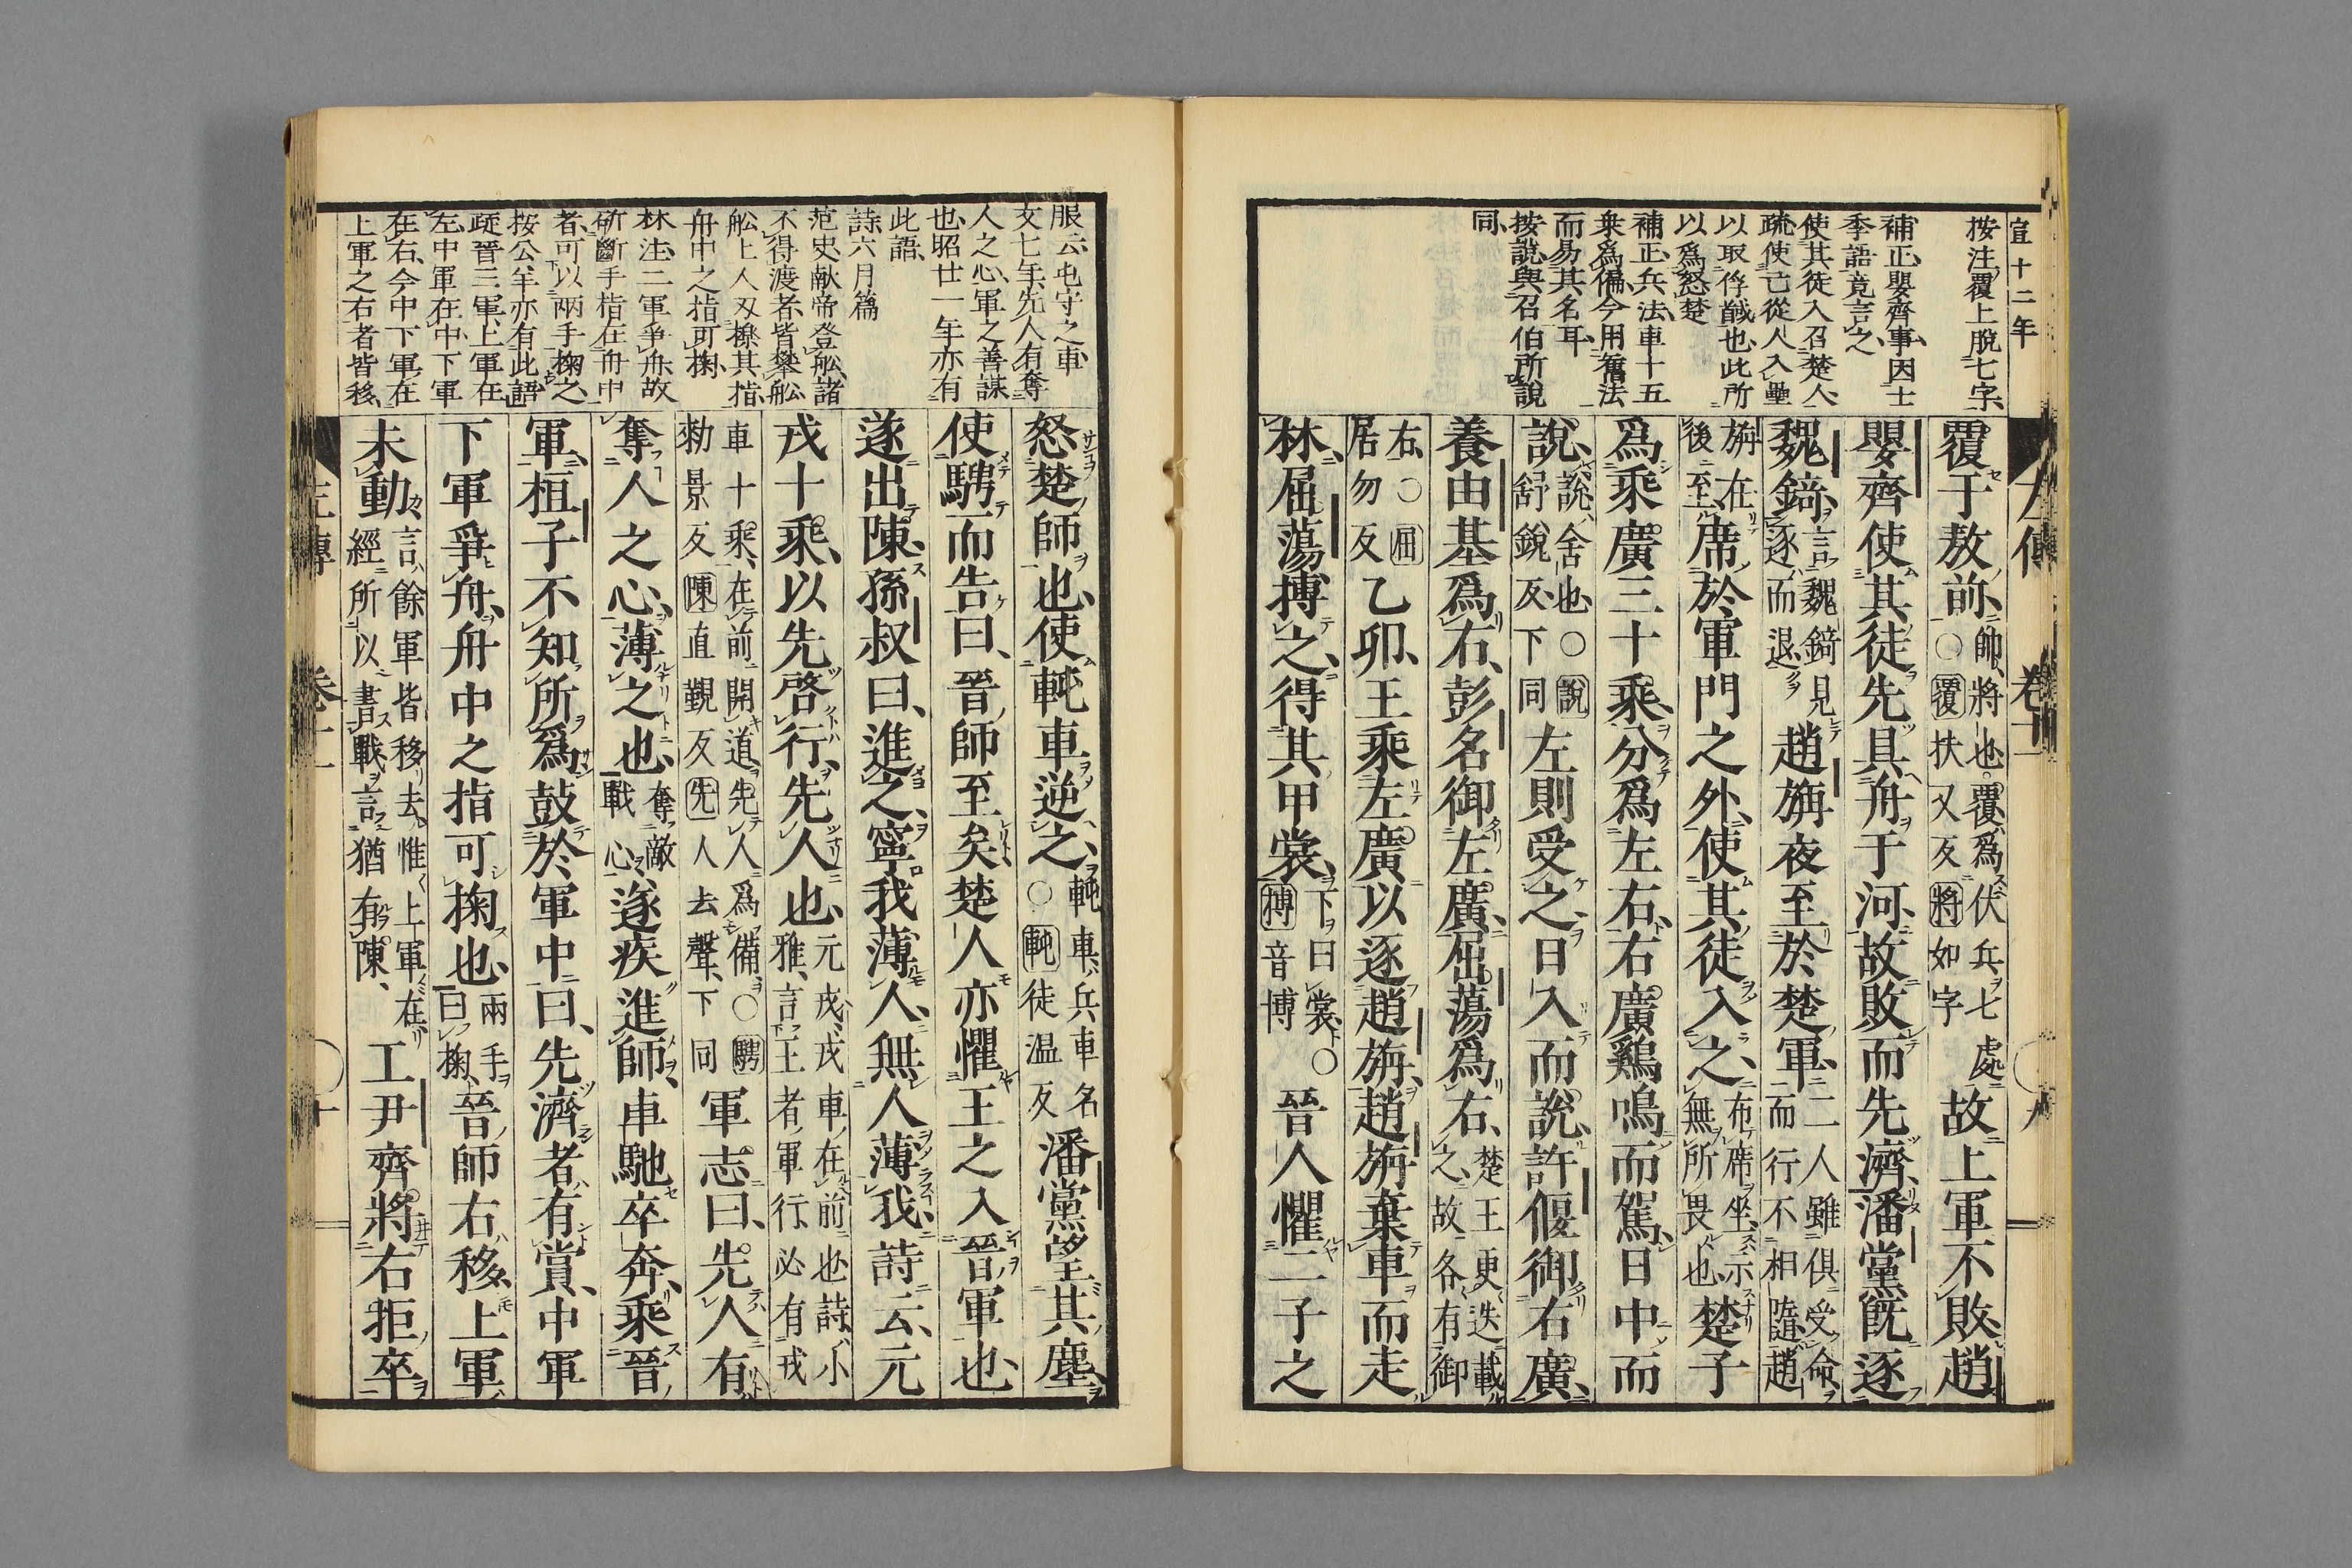 宣十二年
按注覆上脫七字
補正嬰齊事因士
季語竟言之
使其徒入召楚人
疏使亡從人入壘
以取俘馘也此所
以爲怒楚
補正兵法車十五
乗爲偏今用舊法
而易其名耳
按說與召伯所說
同
覆于敖前帥將也覆爲伏兵七處○覆扶又反將如字故上軍不敗趙
嬰齊使其徒先具舟于河故敗而先濟潘黨旣逐
魏錡言魏錡見逐而退趙旃夜至於楚軍二人雖俱受命而行不相隨趙
旃在後至席於軍門之外使其徒入之布席坐示無所畏也楚子
爲乘廣三十乘分爲左右右廣鷄鳴而駕日中而
說說舍也○說舒銳反下同左則受之日入而說許偃御右廣
養由基爲右彭名御左廣屈蕩爲右楚王更迭載之故各有御
右○屈居勿反乙卯王乘左廣以逐趙旃趙旃棄車而走
林屈蕩搏之得其甲裳下曰裳○搏音博晉人懼二子之
服云屯守之車
文七年先人有奪
人之心軍之善謀
也昭廿一年亦有
此語
詩六月篇
范史献帝登舩諸
不得渡者皆攀舩
舩上人刄櫟其指
舟中之指可掬
林注二軍爭舟故
斫斷手指在舟中
者可以兩手掬之
按公羊亦有此語
疏晉三軍上軍在
左中軍在中下軍
在右今中下軍在
上軍之右者皆移
怒楚師也使軘車逆之軘車兵車名○軘徒温反潘黨望其塵
使騁而告曰晉師至矣楚人亦懼王之入晉軍也
遂出陳孫叔曰進之寧我薄人無人薄我詩云元
戎十乘以先啓行先人也元戎戎車在前也詩小雅言王者軍行必有戎
車十乘在前開道先人爲備○騁勑景反陳直覲反先人去聲下同軍志曰先人有
奪人之心薄之也奪敵戰心遂疾進師車馳卒奔乘晉
軍桓子不知所爲鼓於軍中曰先濟者有賞中軍
下軍爭舟舟中之指可掬也兩手曰掬晉師右移上軍
未動言餘軍皆移去惟上軍在經所以書戰言猶有陳工尹齊將右拒卒